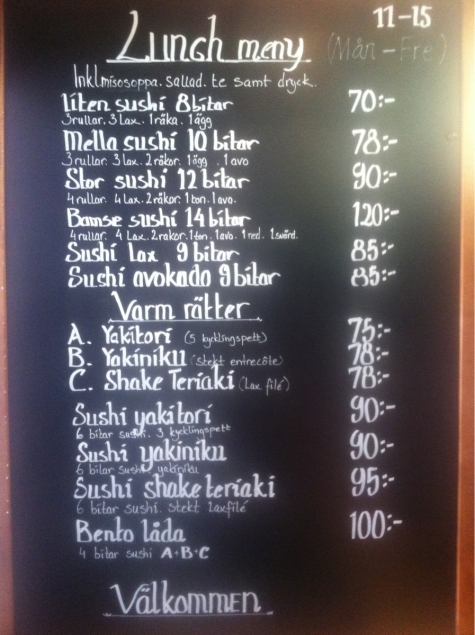 11-15
Lunch meny (Mån-Fre)
Inkl misosoppa. sallad. te samt dryck.
liten sushi 8 bitar 70:-
3 rullar. 3 lax. 1 räka. 1 ägg
Mella sushi 10 bitar 78:-
3 rullar. 3 lax. 2 räkor. 1 ägg. 1 avo
Stor sushi 12 bitar 90:-
4 rullar. 4 Lax. 2 räkor. 1 ton. 1 avo.
Bamse sushi 14 bitar 120:-
4 rullar. 4 Lax. 2 räkor. 1 ton. 1 avo. 1 red. 1 svärd.
Sushi Lax 9 bitar 85:-
Sushi avokado 9 bitar 85:-
Varm rätter
A. Yakitori (5 kycklingspett) 75:-
B. Yakiniku (stekt entrecôte) 78:-
C. Shake Teriaki (Lax filé) 78:-
Sushi yakitori 90:-
6 bitar sushi. 3 kycklingspett
Sushi yakiniku 90:-
6 bitar sushi yakiniku
Sushi shake teriaki 95:-
6 bitar sushi. stekt laxfilé
Bento låda 100:-
4 bitar sushi A+B+C
Välkommen